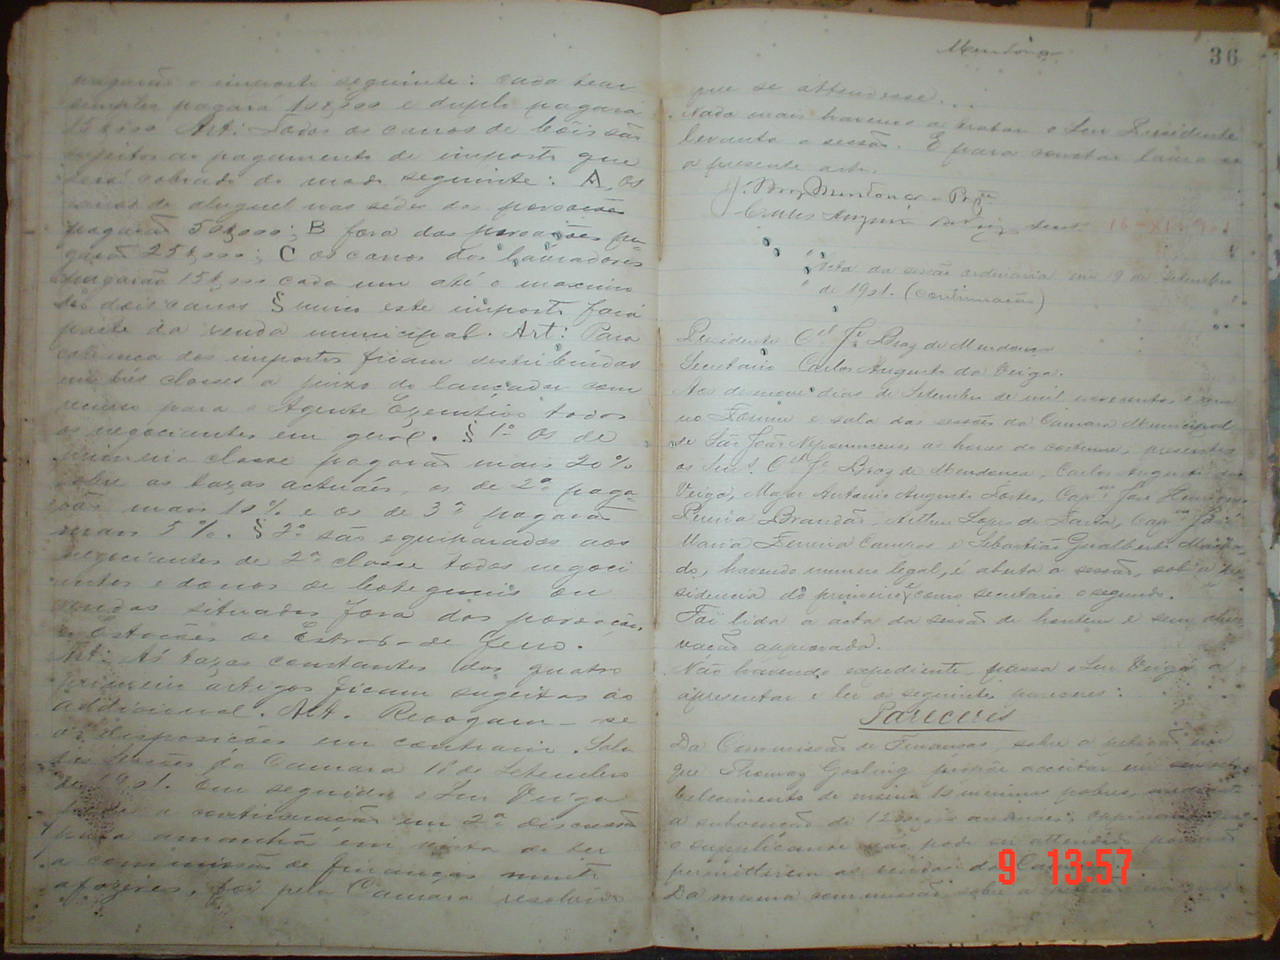 pagarão o imposto seguinte: cada
simples pagará e duplo pagará
Art: Todos os carros de bois são
sujeitos ao pagamento de imposto que
será cobrado do modo seguinte: A, os
carros de aluguel nas sedes das povoações
pagarão 50$000; B fora das povoações pa-
garão 25$000; C os carros dos lavradores
pagarão 15$000 cada um até o maximo
de dois carros § unico este imposto fará
parte da renda municipal. Art: Para
cobrança dos impostos ficam distribuidos
em tres classes a juizo do lançador com
recurso para o Agente Ezecutivo todos
os negociantes em geral. § 1º Os de
primeira classe pagarão mais 20%
sobre as tazas actuaes, os de 2ª paga-
rão mais 10% e os de 3ª pagarão
mais 5%. § 2º são equiparados aos
negociantes de 2ª classe todos negoci
antes e donos de botequins ou
vendas situados fora das povoações
e Estações de Estrada de ferro.
Art: As tazas constantes dos quatro
primeiros artigos ficam sugeitas ao
addicional. Art. Revogam-se
as disposições em contrario. Sala
das Sessões da Camara 18 de Setembro
de 1901. Em seguida o Snr Veiga
pede a continuação em 2ª discussão
para amanhã em vista de ter
a commissão de finanças muito
a fazer, foi pela Camara resolvido
Mendonça
36
que se attendesse...
Nada mais havendo a tratar o Snr Presidente
levanta a sessão. E para constar lavro
a presente acta.
J. Braz Mendonça Pr.te
Carlos Augusto
Acta da sessão ordinaria em 19 de Setembro
de 1901. (continuação)
Presidente Cel Je Braz de Mendonça
Secretario Carlos Augusto da Veiga.
Aos desenove dias de Setembro de mil novecentos e um
no Forum e sala das sessões da Camara Municipal
de São João Nepomuceno as horas do costume, presentes
os Snrs. Cel Je Braz de Mendonça, Carlos Augusto da
Veiga, Major Antonio Augusto Fortes, Capam José Henriques
Pereira Brandão, Arthur Lopes de Faria, Capam José
Maria Ferreira Campos e Sebastião Gualberto Macha-
do, havendo numero legal, é aberta a sessão, sob a pre-
sidencia do primeiro, como secretario o segundo.
Foi lida a acta da sessão de hontem e sem obser
vação approvada.
Não havendo expediente, passa o Snr Veiga a
apresentar e ler os seguintes pareceres:
Pareceres
Da Commissão de Finanças, sobre a petição em
que Thomaz Gosling propõe acceitar em seu esta-
belecimento de ensino 10 meninos pobres, mediante
a subvenção de annuaes; opinou que
o supplicante não pode ser attendido por não
permittirem as rendas da
Da mesma commissão sobre a
9 13:57